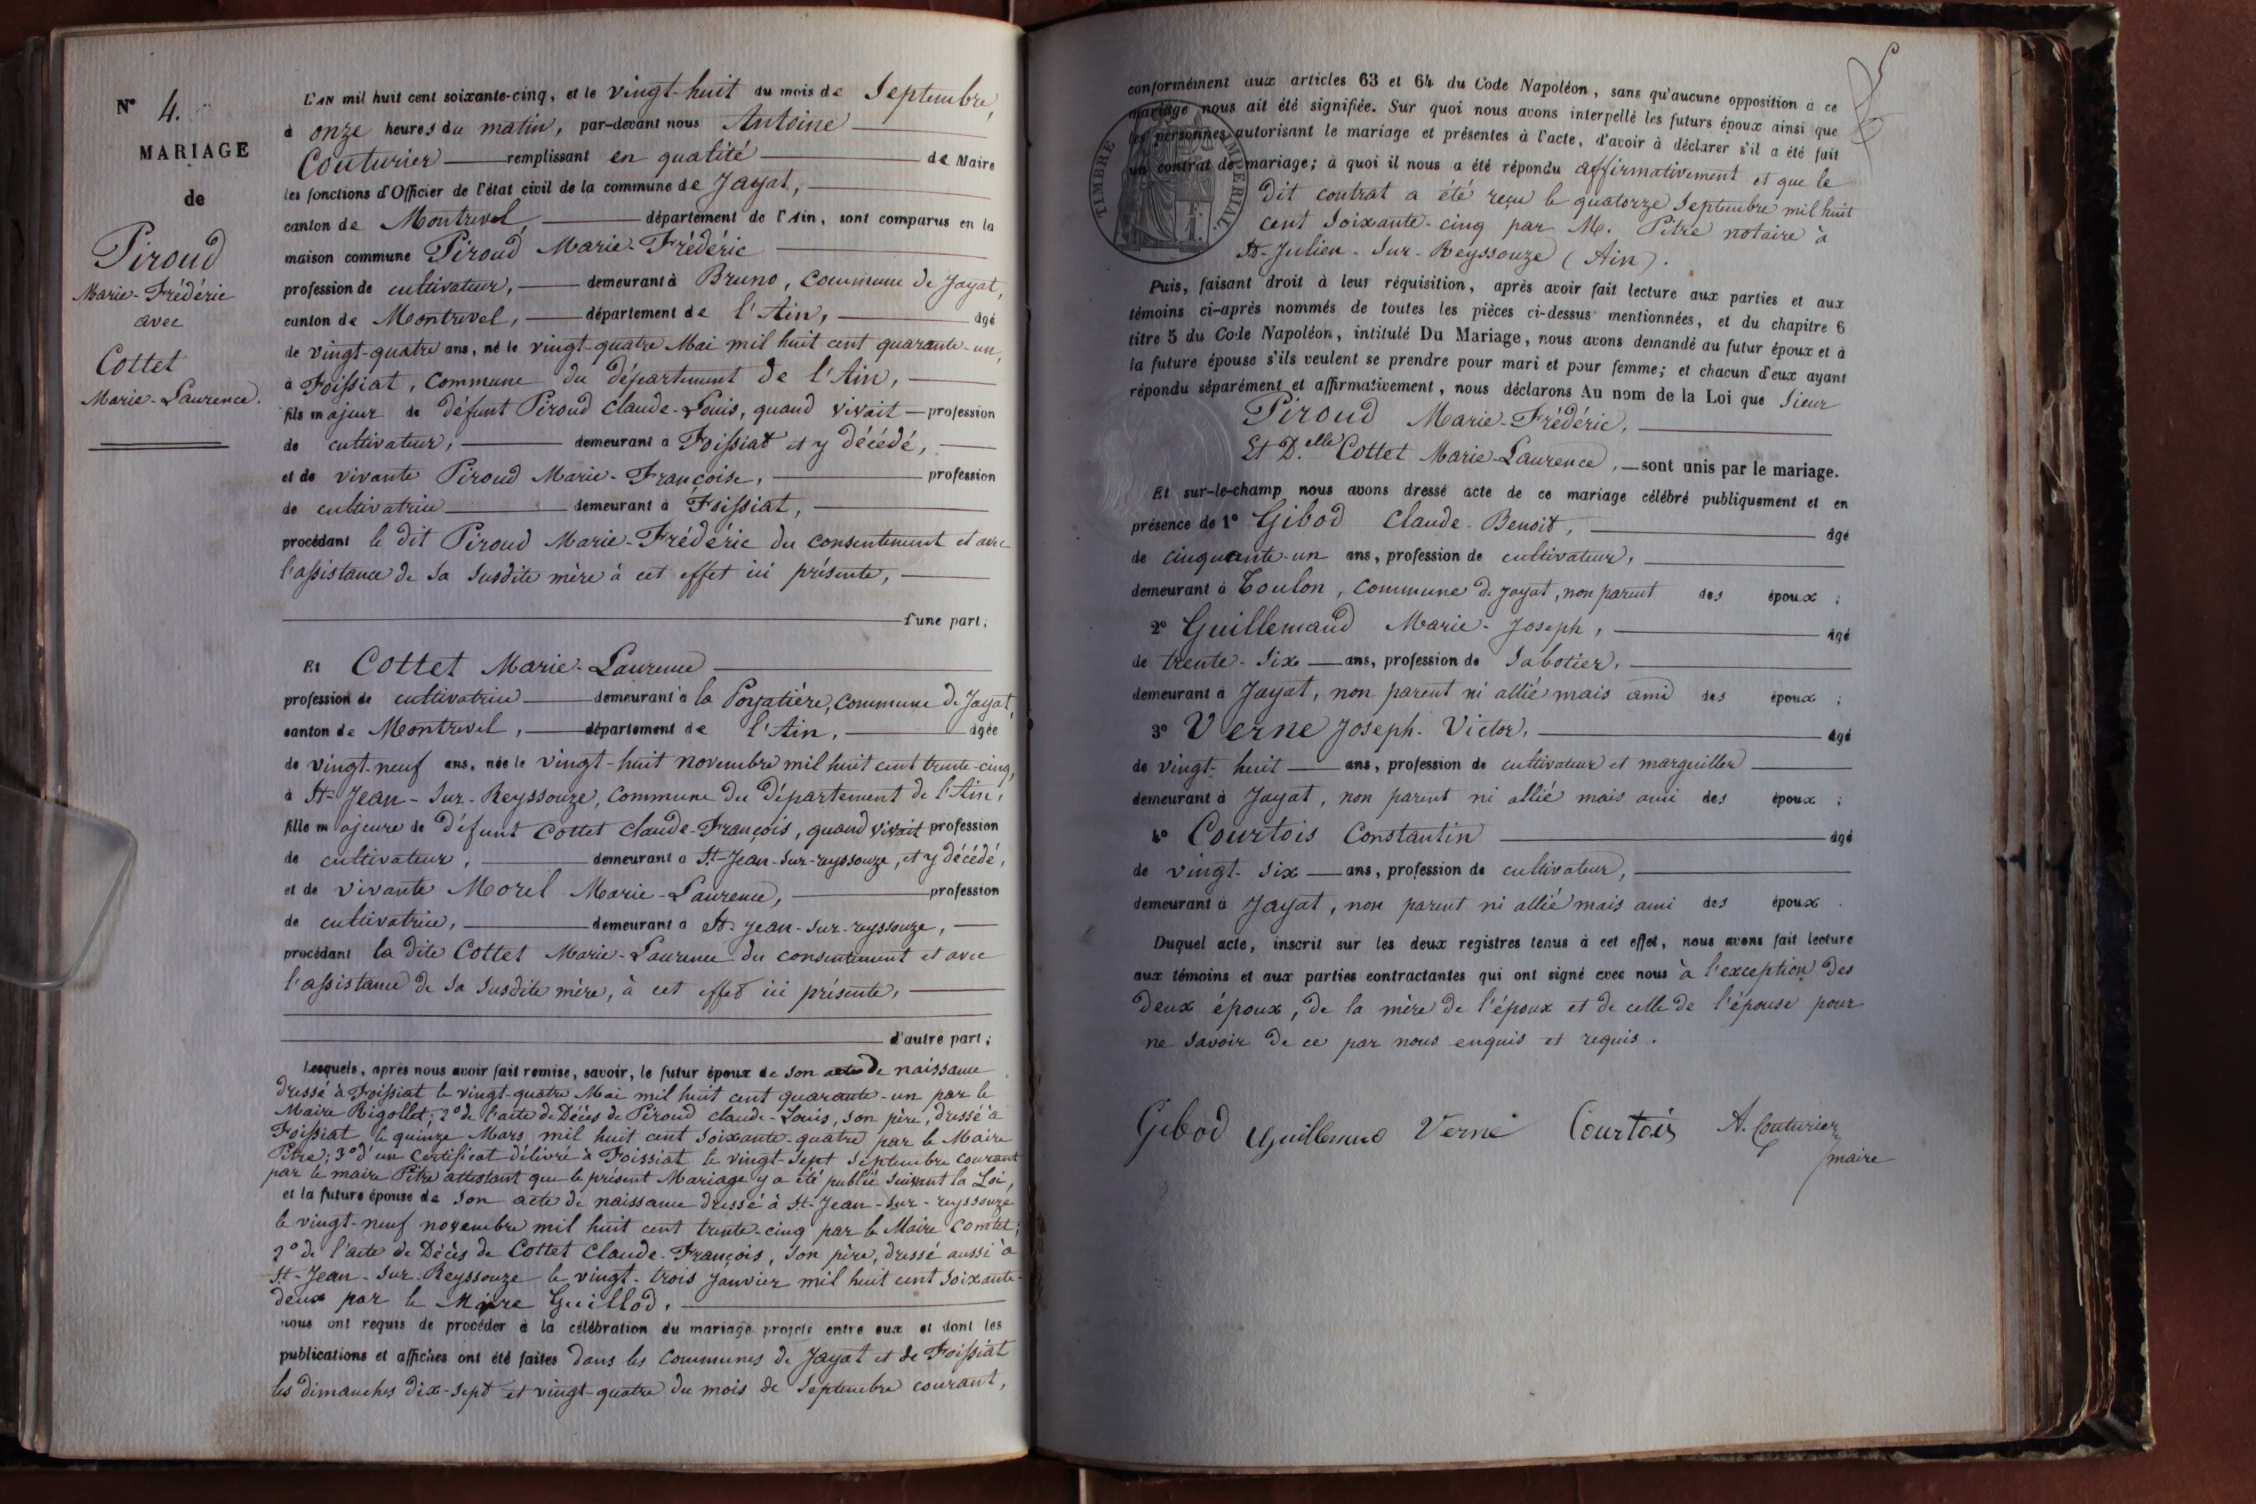 N° 4.
MARIAGE
de
Piroud
Marie-Frédéric
avec
Cottet
Marie-Laurence.
L'AN mil huit cent soixante-cinq, et le vingt-huit du mois de Septembre,
à onze heures du matin, par-devant nous Antoine
Couturier remplissant en qualité de Maire
les fonctions d'Officier de l'état civil de la commune de Jayat,
canton de Montrevel, département de l'Ain, sont comparus en la
maison commune Piroud Marie-Frédéric
profession de cultivateur, demeurant à Bruno, commune de Jayat,
canton de Montrevel, département de l'Ain, âgé
de vingt-quatre ans, né le vingt-quatre Mai mil huit cent quarante-un,
à Foissiat, commune du département de l'Ain,
fils majeur de défunt Piroud Claude-Louis, quand vivait profession
de cultivateur, demeurant à Foissiat et y décédé,
et de vivante Piroud Marie-Françoise, profession
de cultivatrice demeurant à Foissiat,
procédant le dit Piroud Marie-Frédéric du consentement et avec
l'assistance de sa susdite mère à cet effet ici présente,
d'une part;
Et Cottet Marie-Laurence
profession de cultivatrice demeurant à la Poyatière, commune de Jayat,
canton de Montrevel, département de l'Ain, âgée
de vingt-neuf ans, née le vingt-huit novembre mil huit cent trente-cinq,
à St-Jean-sur-Reyssouze, commune du département de l'Ain,
fille majeure de défunt Cottet Claude-François, quand vivait profession
de cultivateur, demeurant à St-Jean-sur-reyssouze, et y décédé,
et de vivante Morel Marie-Laurence, profession
de cultivatrice, demeurant à St-Jean-sur-reyssouze,
procédant la dite Cottet Marie-Laurence du consentement et avec
l'assistance de sa susdite mère, à cet effet ici présente,
d'autre part;
Lesquels, après nous avoir fait remise, savoir, le futur époux de son acte de naissance
dressé à Foissiat le vingt-quatre Mai mil huit cent quarante-un par le
Maire Rigollet; 2° de l'acte de Décès de Piroud Claude-Louis, son père, dressé à
Foissiat le quinze Mars mil huit cent soixante-quatre par le Maire
Pitre; 3° d'un certificat délivré à Foissiat le vingt-sept septembre courant
par le maire Pitre attestant que le présent Mariage y a été publié suivant la Loi,
et la future épouse de son acte de naissance dressé à St-Jean-sur-reyssouze
le vingt-neuf novembre mil huit cent trente-cinq par le Maire Comtet;
2° de l'acte de Décès de Cottet Claude-François, son père, dressé aussi à
St-Jean-sur-Reyssouze le vingt-trois Janvier mil huit cent soixante-
deux par le Maire Guillod,
nous ont requis de procéder à la célébration du mariage projeté entre eux et dont les
publications et affiches ont été faites dans les communes de Jayat et de Foissiat
les dimanches dix-sept et vingt-quatre du mois de Septembre courant,
conformément aux articles 63 et 64 du Code Napoléon, sans qu'aucune opposition à ce
mariage nous ait été signifiée. Sur quoi nous avons interpellé les futurs époux ainsi que
les personnes autorisant le mariage et présentes à l'acte, d'avoir à déclarer s'il a été fait
un contrat de mariage; à quoi il nous a été répondu affirmativement et que le
dit contrat a été reçu le quatorze Septembre mil huit
cent soixante-cinq par M. Pitre notaire à
St-Julien-sur-Reyssouze (Ain).
TIMBRE IMPERIAL.
Puis, faisant droit à leur réquisition, après avoir fait lecture aux parties et aux
témoins ci-après nommés de toutes les pièces ci-dessus mentionnées, et du chapitre 6
titre 5 du Code Napoléon, intitulé Du Mariage, nous avons demandé au futur époux et à
la future épouse s'ils veulent se prendre pour mari et pour femme; et chacun d'eux ayant
répondu séparément et affirmativement, nous déclarons Au nom de la Loi que Sieur
Piroud Marie-Frédéric,
Et D.elle Cottet Marie-Laurence, sont unis par le mariage.
Et sur-le-champ nous avons dressé acte de ce mariage célébré publiquement et en
présence de 1° Gibod Claude-Benoît, âgé
de cinquante-un ans, profession de cultivateur,
demeurant à Toulon, commune de Jayat, non parent des époux;
2° Guillemaud Marie-Joseph, âgé
de trente-six ans, profession de Sabotier,
demeurant à Jayat, non parent ni allié mais ami des époux;
3° Verne Joseph-Victor, âgé
de vingt-huit ans, profession de cultivateur et marguiller
demeurant à Jayat, non parent ni allié mais ami des époux;
4° Courtois Constantin âgé
de vingt-six ans, profession de cultivateur,
demeurant à Jayat, non parent ni allié mais ami des époux.
Duquel acte, inscrit sur les deux registres tenus à cet effet, nous avons fait lecture
aux témoins et aux parties contractantes qui ont signé avec nous à l'exception des
deux époux, de la mère de l'époux et de celle de l'épouse pour
ne savoir de ce par nous enquis et requis.
Gibod Guillemaud Verne Courtois A. Couturier
maire